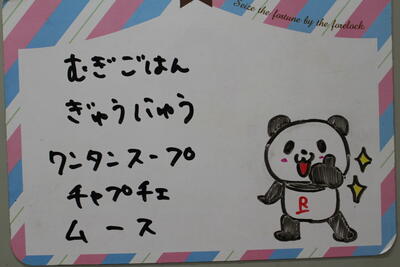 Seize the fortune by the forelock.
むぎごはん
ぎゅうにゅう
ワンタンスープ
チャプチェ
ムース
R